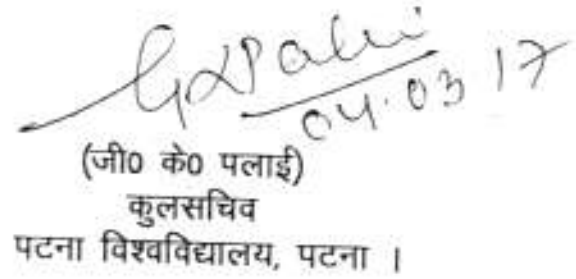 GKPalai
04.03.17
(जी0 के0 पलाई)
कुलसचिव
पटना विश्वविद्यालय, पटना ।